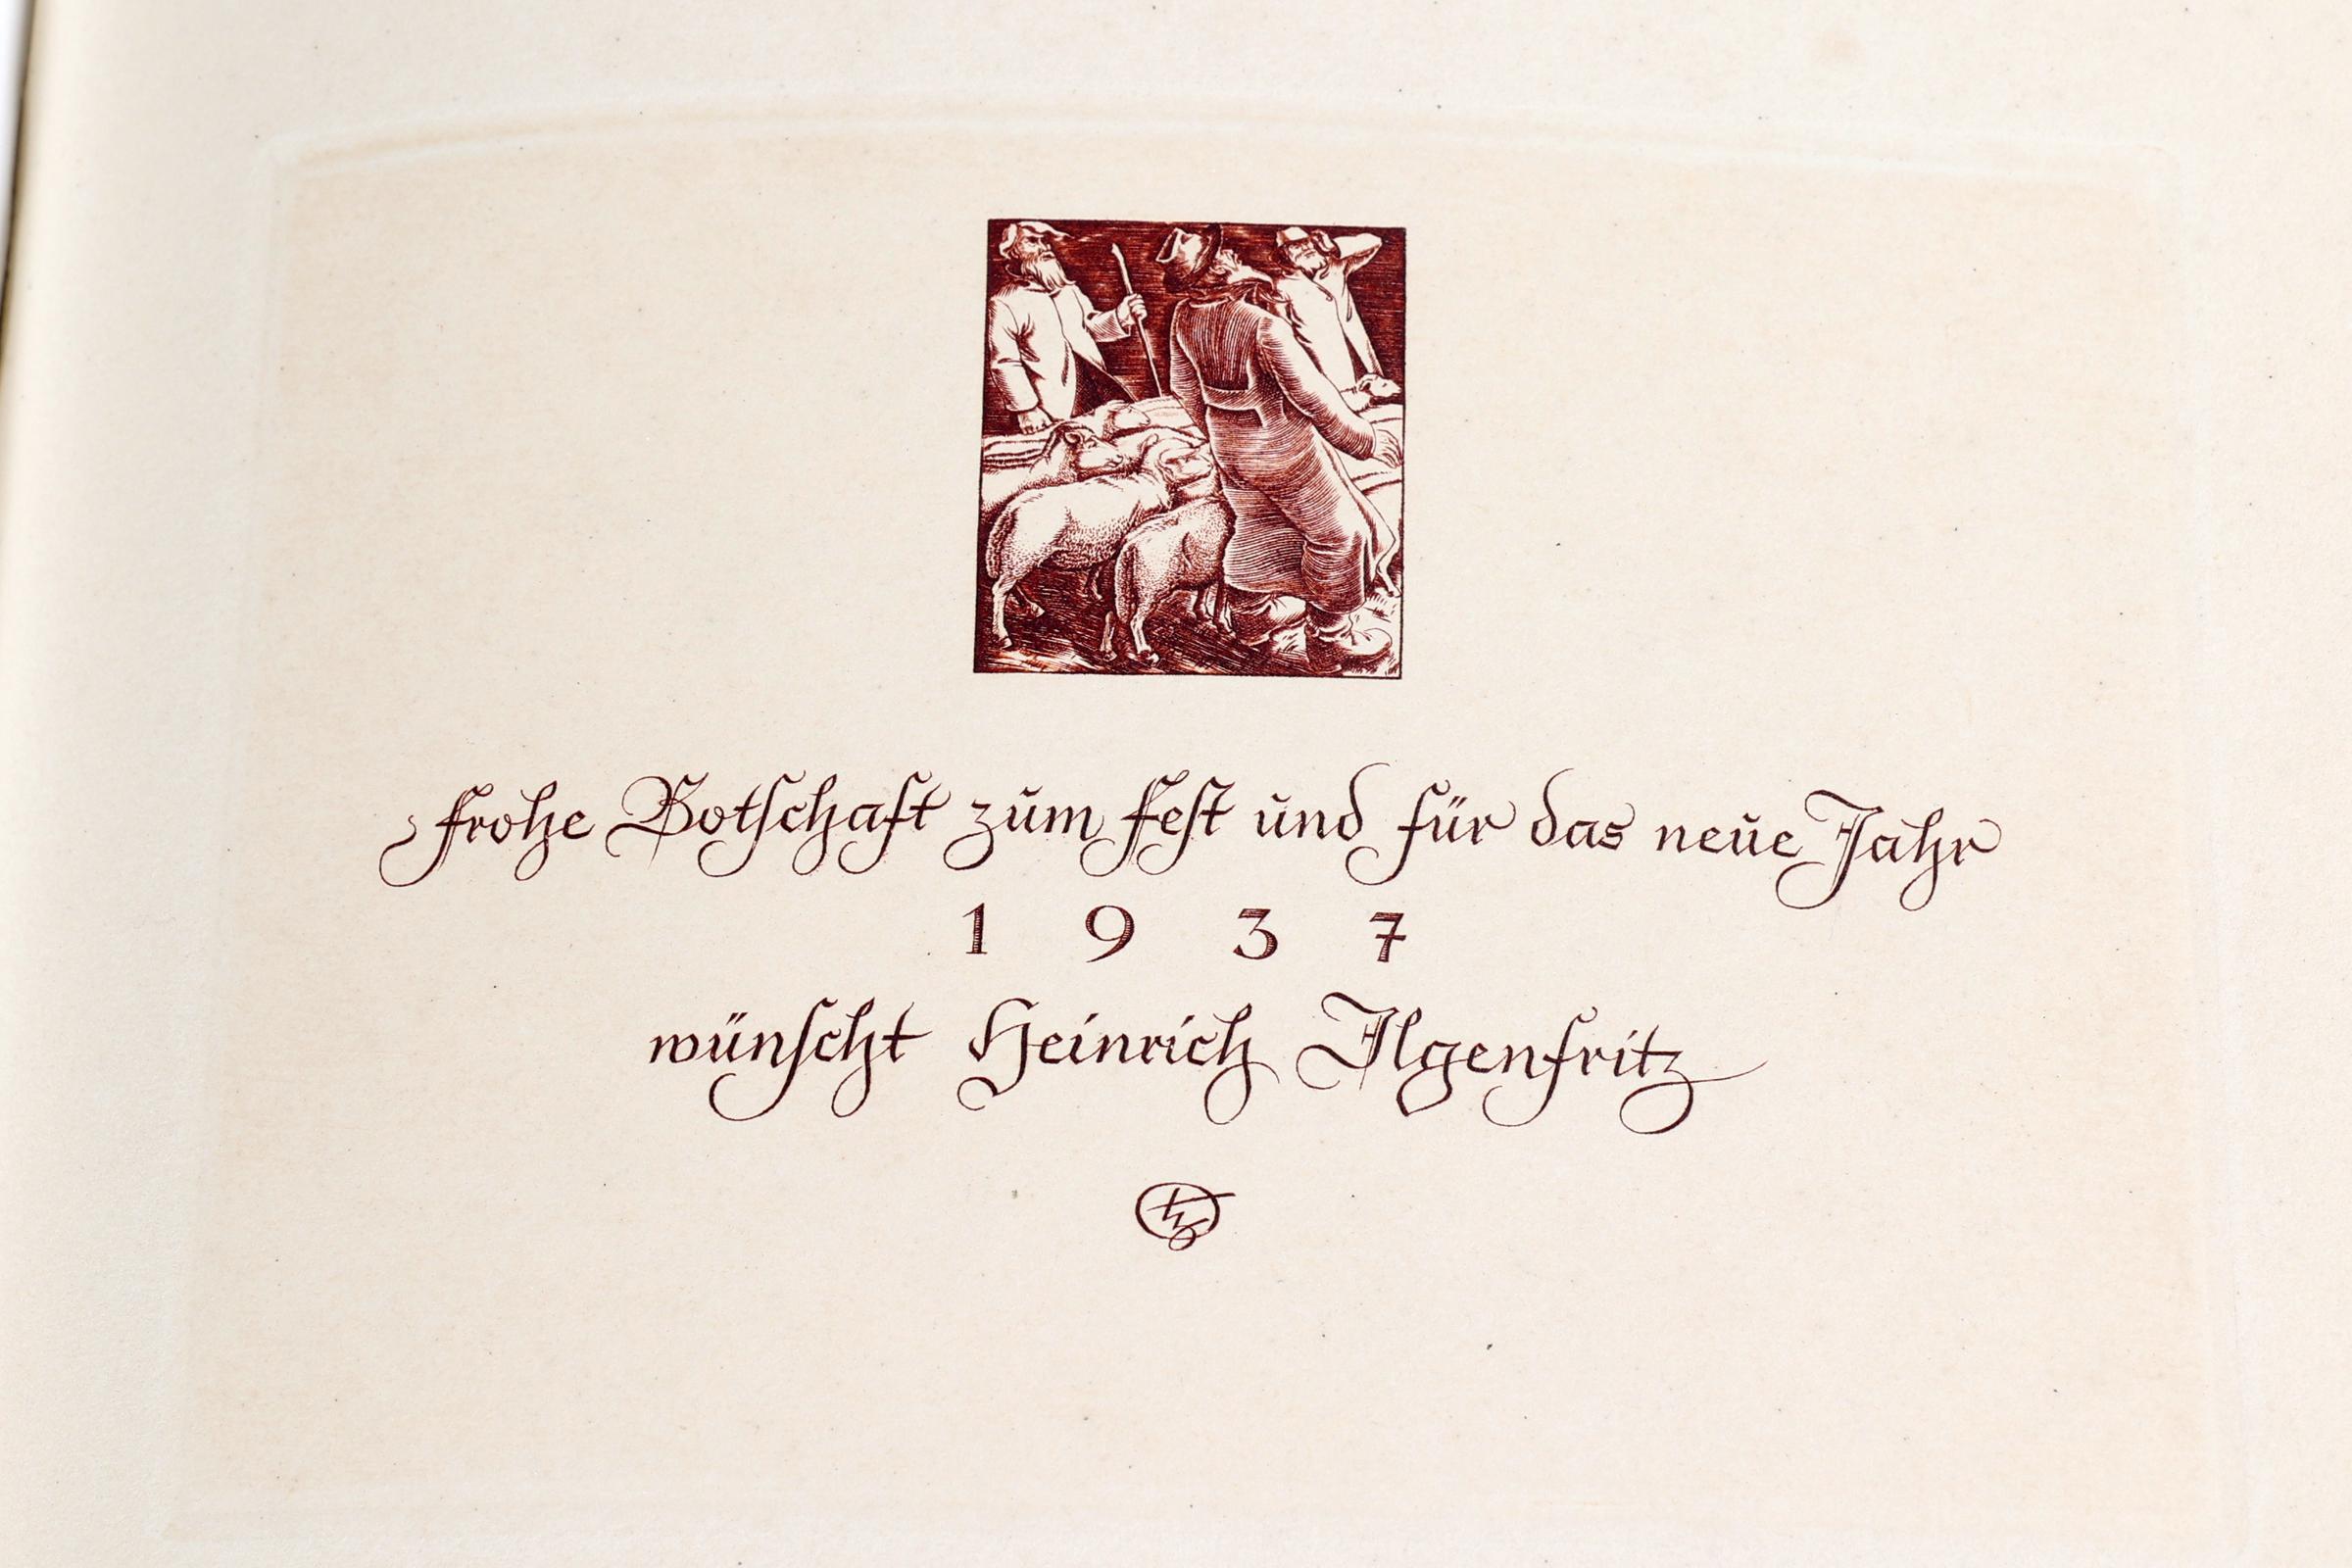 Frohe Botschaft zum Fest und für das neue Jahr
1937
wünscht Heinrich Ilgenfritz